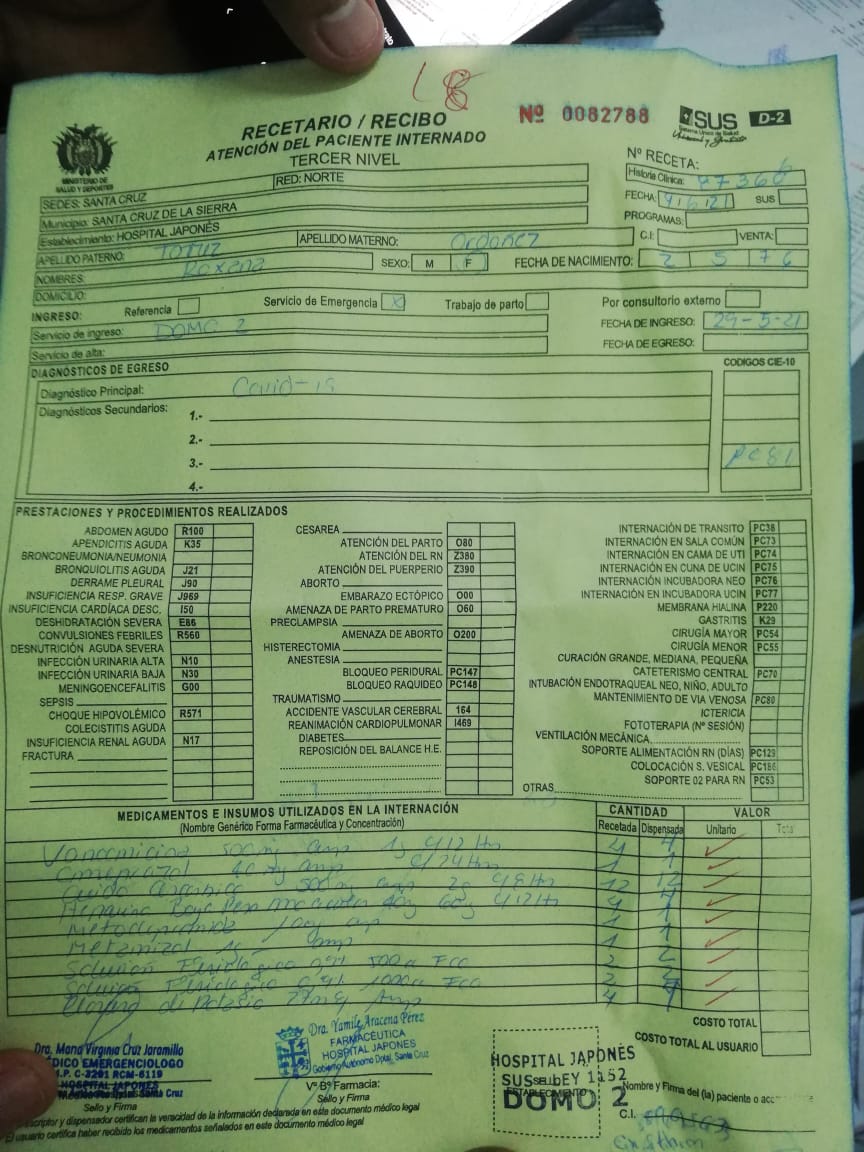 18
RECETARIO / RECIBO
ATENCIÓN DEL PACIENTE INTERNADO
TERCER NIVEL
Nº 0082788
SUS D-2
Sistema Único de Salud
MINISTERIO DE
SALUD Y DEPORTES
Nº RECETA:
SEDES: SANTA CRUZ RED: NORTE Historia Clinica:
Municipio: SANTA CRUZ DE LA SIERRA FECHA: 9/6/21 SUS
Establecimiento: HOSPITAL JAPONÉS PROGRAMAS:
APELLIDO PATERNO: APELLIDO MATERNO: Ordoñez C.I.: VENTA:
NOMBRES: Roxena SEXO: M F FECHA DE NACIMIENTO: 2 5 76
DOMICILIO:
INGRESO: Referencia Servicio de Emergencia X Trabajo de parto Por consultorio externo
Servicio de ingreso: DOMO 2 FECHA DE INGRESO: 29-5-21
Servicio de alta: FECHA DE EGRESO:
DIAGNÓSTICOS DE EGRESO CODIGOS CIE-10
Diagnóstico Principal: Covid-19
Diagnósticos Secundarios: 1.-
2.-
3.- PC81
4.-
PRESTACIONES Y PROCEDIMIENTOS REALIZADOS
ABDOMEN AGUDO R100
APENDICITIS AGUDA K35
BRONCONEUMONIA/NEUMONIA
BRONQUIOLITIS AGUDA J21
DERRAME PLEURAL J90
INSUFICIENCIA RESP. GRAVE J969
INSUFICIENCIA CARDÍACA DESC. I50
DESHIDRATACIÓN SEVERA E86
CONVULSIONES FEBRILES R560
DESNUTRICIÓN AGUDA SEVERA
INFECCIÓN URINARIA ALTA N10
INFECCIÓN URINARIA BAJA N30
MENINGOENCEFALITIS G00
SEPSIS
CHOQUE HIPOVOLÉMICO R571
COLECISTITIS AGUDA
INSUFICIENCIA RENAL AGUDA N17
FRACTURA
CESAREA
ATENCIÓN DEL PARTO O80
ATENCIÓN DEL RN Z380
ATENCIÓN DEL PUERPERIO Z390
ABORTO
EMBARAZO ECTÓPICO O00
AMENAZA DE PARTO PREMATURO O60
PRECLAMPSIA
AMENAZA DE ABORTO O200
HISTERECTOMIA
ANESTESIA
BLOQUEO PERIDURAL PC147
BLOQUEO RAQUIDEO PC148
TRAUMATISMO
ACCIDENTE VASCULAR CEREBRAL 164
REANIMACIÓN CARDIOPULMONAR I469
DIABETES
REPOSICIÓN DEL BALANCE H.E.
INTERNACIÓN DE TRANSITO PC38
INTERNACIÓN EN SALA COMÚN PC73
INTERNACIÓN EN CAMA DE UTI PC74
INTERNACIÓN EN CUNA DE UCIN PC75
INTERNACIÓN INCUBADORA NEO PC76
INTERNACIÓN EN INCUBADORA UCIN PC77
MEMBRANA HIALINA P220
GASTRITIS K29
CIRUGÍA MAYOR PC54
CIRUGÍA MENOR PC55
CURACIÓN GRANDE, MEDIANA, PEQUEÑA
CATETERISMO CENTRAL PC70
INTUBACIÓN ENDOTRAQUEAL NEO, NIÑO, ADULTO
MANTENIMIENTO DE VIA VENOSA PC80
ICTERICIA
FOTOTERAPIA (Nº SESIÓN)
VENTILACIÓN MECÁNICA
SOPORTE ALIMENTACIÓN RN (DÍAS) PC129
COLOCACIÓN S. VESICAL PC186
SOPORTE 02 PARA RN PC53
OTRAS
MEDICAMENTOS E INSUMOS UTILIZADOS EN LA INTERNACIÓN CANTIDAD VALOR
(Nombre Genérico Forma Farmacéutica y Concentración) Recetada Dispensada Unitario Total
500mg amp 1g c/12 Hrs 4 4
Omeprazol 40 mg amp c/24 Hrs 1 1
500 mg amp 2g 12 12
4
Metoclopramida 10mg amp 1 1
Metamizol 1g amp 1
Solucion Fisiologico 0,9% 500cc FCO 2
Solucion Fisiologico 0,9% 1000cc FCO 2
Cloruro de Potasio 27mEq Amp 4
COSTO TOTAL
COSTO TOTAL AL USUARIO
Dra. Maria Virginia Cruz Jaramillo
MÉDICO EMERGENCIOLOGO
HOSPITAL JAPONES
Sello y Firma
Dra. Yamile Aracena Pérez
FARMACÉUTICA
HOSPITAL JAPONES
Gobierno Autónomo Dptal. Santa Cruz
VºBº Farmacia:
Sello y Firma
HOSPITAL JAPONÉS
SUS LEY 1152
DOMO 2
ESTABLECIMIENTO
Nombre y Firma del (la) paciente o
C.I.
prescriptor y dispensador certifican la veracidad de la información declarada en este documento médico legal
El usuario certifica haber recibido los medicamentos señalados en este documento médico legal